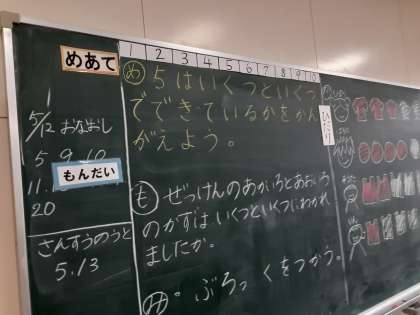 めあて
1
5/12 おなおし
5 9 10
もんだい
11.
20
さんすうのうと
5.13
1 2 3 4 5 6 7 8 9 10
め 5はいくつといくつ
でできているかをかん
がえよう。
も ぜっけんのあかいろとあおいろ
のかずは いくつといくつにわかれ
ましたか。
ぶろっくをつかう。
ひだり